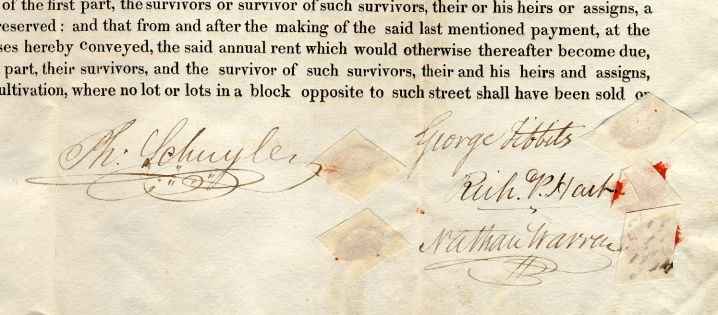 of the first part, the survivors or survivor of such survivors, their or his heirs or assigns, a
reserved : and that from and after the making of the said last mentioned payment, at the
ses hereby conveyed, the said annual rent which would otherwise thereafter become due,
part, their survivors, and the survivor of such survivors, their and his heirs and assigns,
ultivation, where no lot or lots in a block opposite to such street shall have been sold or
Ph: Schuyler
George Tibbits
Rich. P. Hart
Nathan Warren